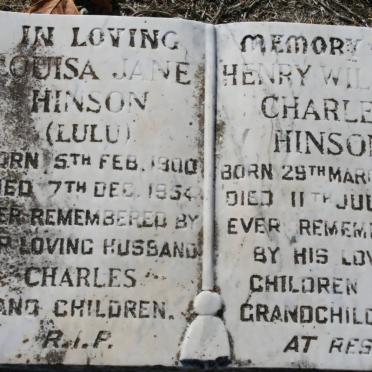 IN LOVING
OUISA JANE
HINSON
(LULU)
ORN 5TH FEB. 1900
IED 7TH DEC. 1954
ER REMEMBERED BY
R LOVING HUSBAND
CHARLES
AND CHILDREN.
R.I.P.
MEMORY
HENRY WIL
CHARLE
HINSON
BORN 29TH MAR
DIED 11TH JUL
EVER REMEME
BY HIS LOV
CHILDREN
GRANDCHILD
AT RES